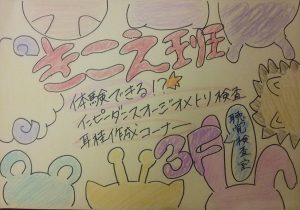 きこえ班
体験できる！？
インピーダンスオージオメトリ検査
耳栓作成コーナー
3F
聴覚検査室